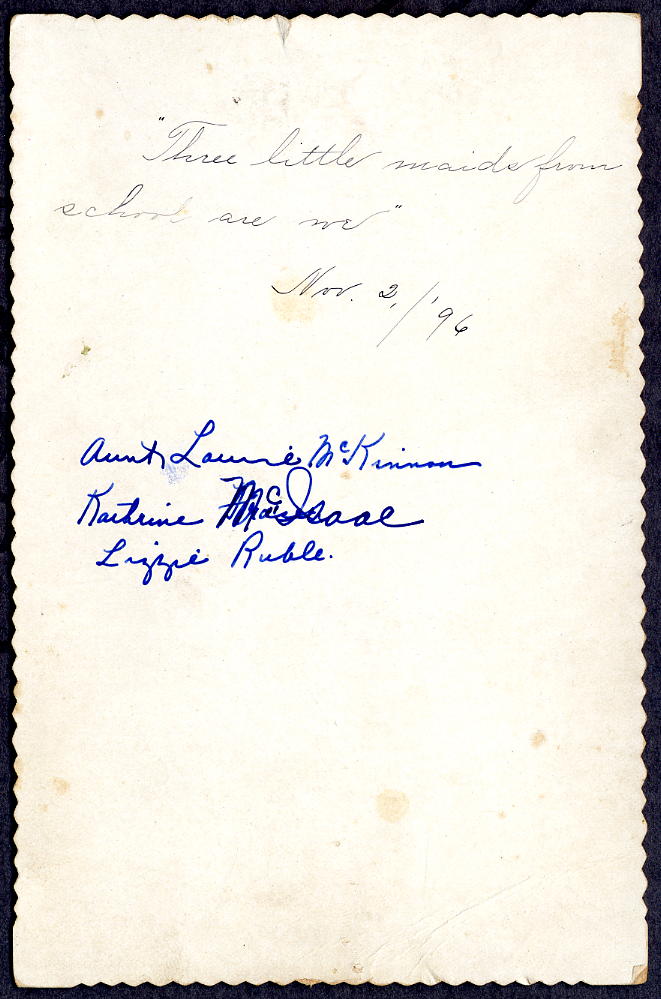 "Three little maids from
school are we"
Nov. 2, / '96
Aunt Laurie McKinnon
Kathrine McIsaac
Lizzie Ruble.